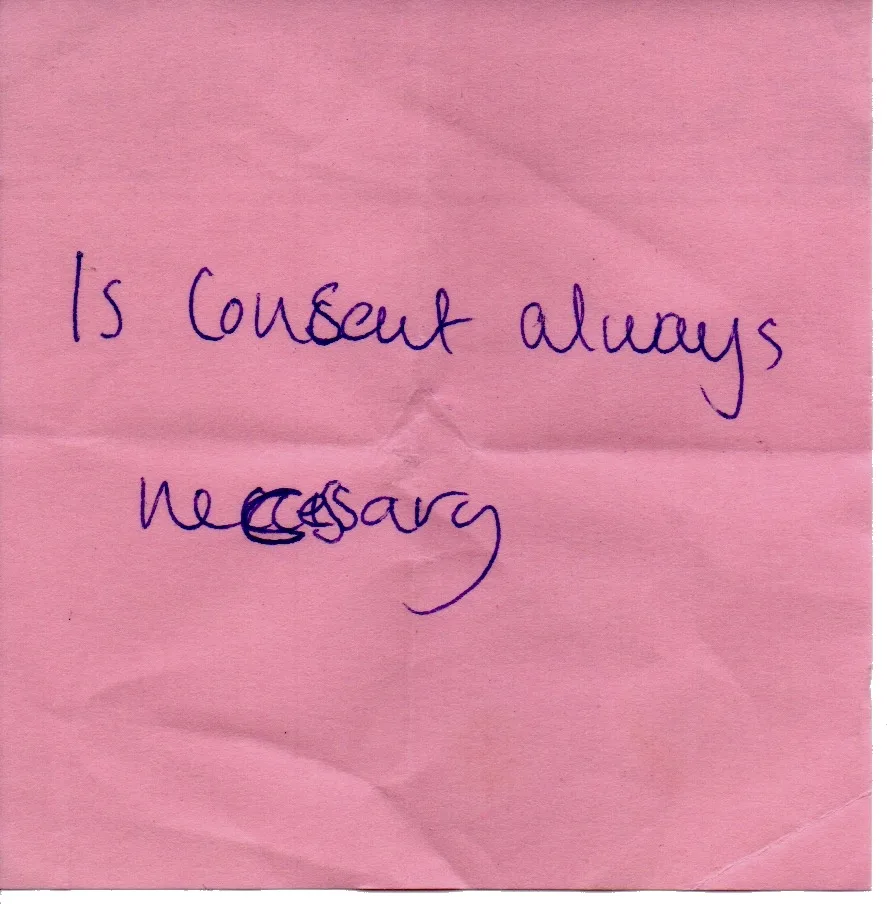 Is Consent always
necessary